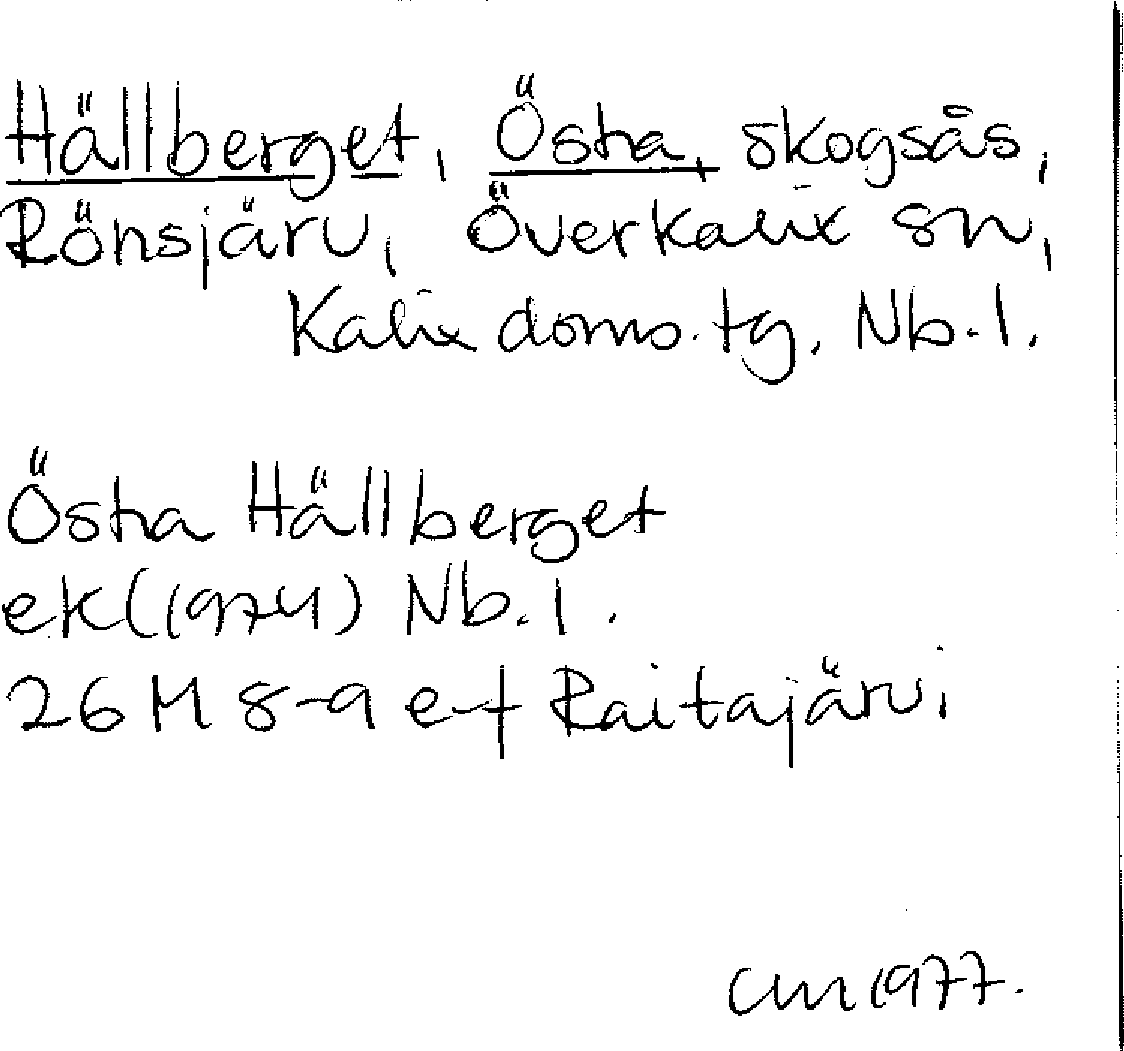 Hällberget, Östra, skogsås,
Rönsjärv, Överkalix sn,
Kalix doms. tg. Nb. l.
Östra Hällberget
ek (1974) Nb. l.
26 M 8-9 e-f Raitajärvi
CM 1977.